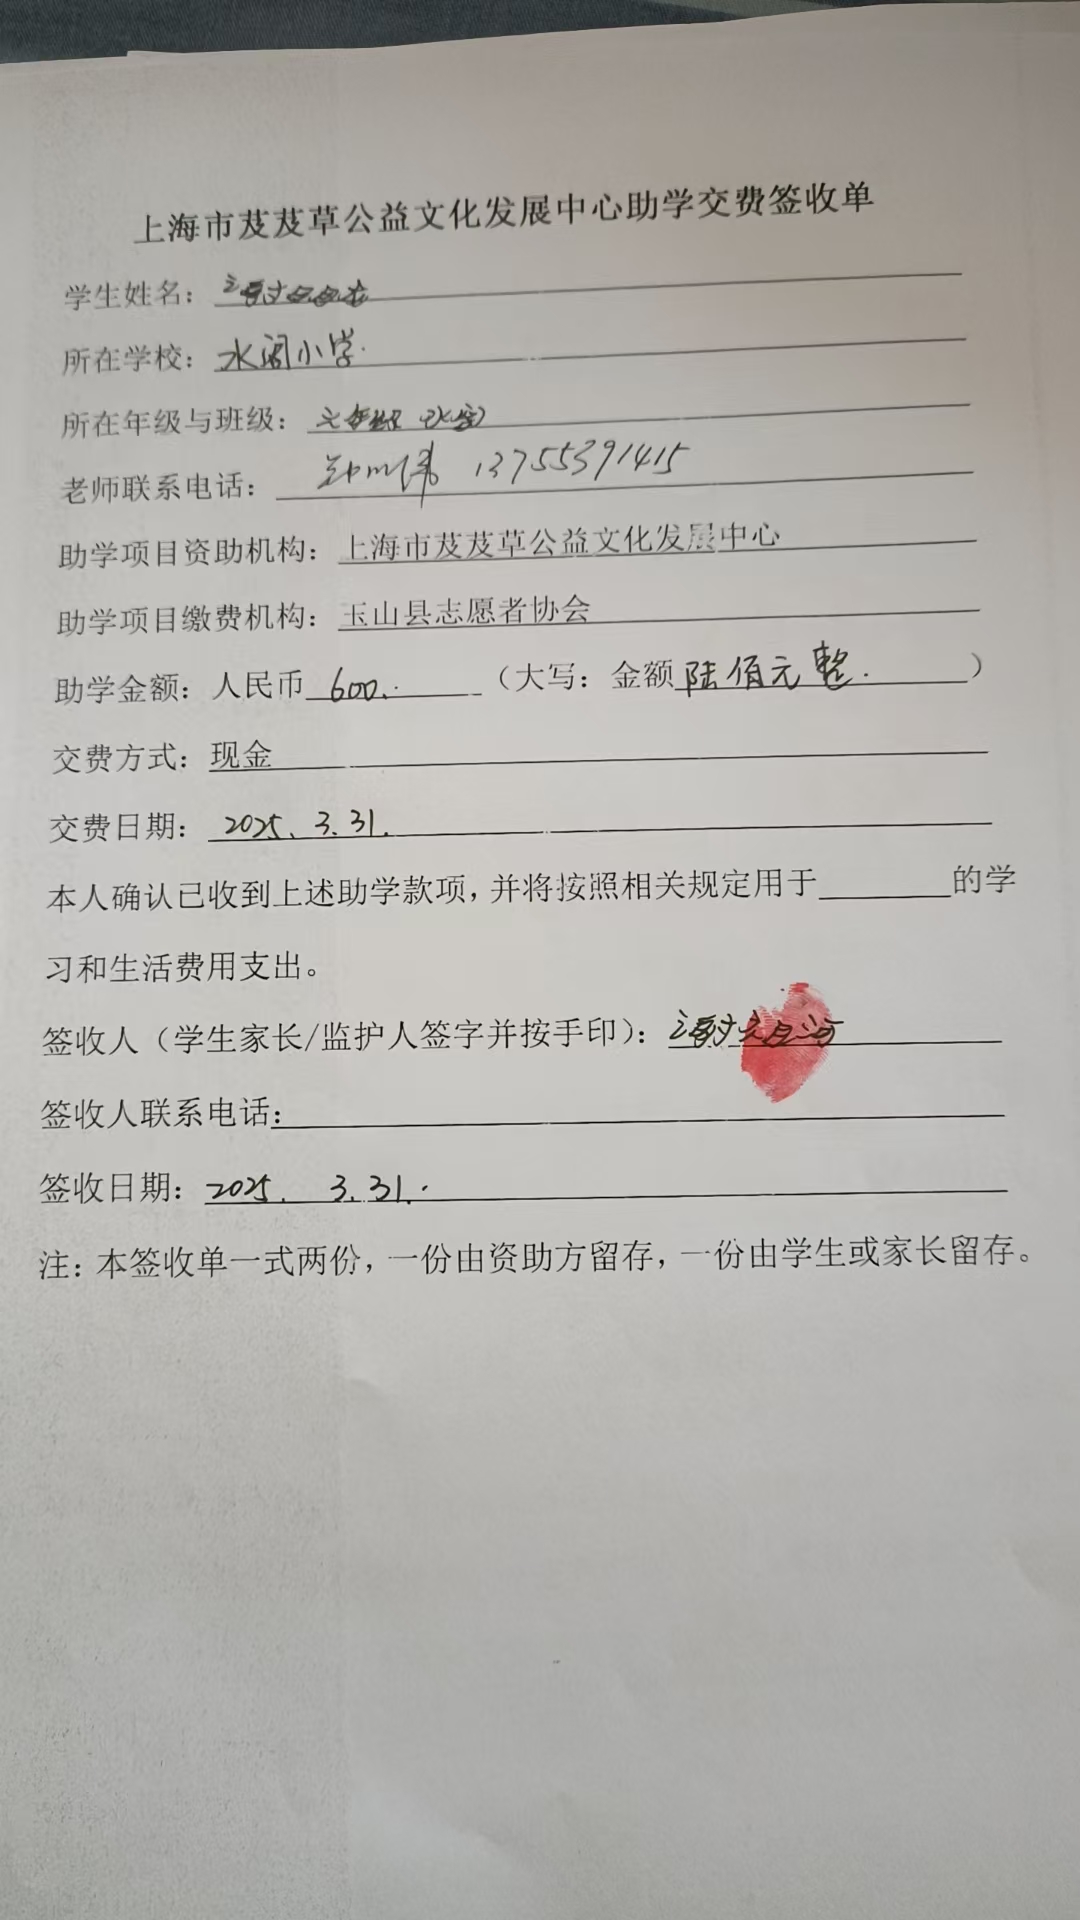 上海市芨芨草公益文化发展中心助学交费签收单
学生姓名：
所在学校：水阁小学.
所在年级与班级：六年级
老师联系电话： 13755391415
助学项目资助机构：上海市芨芨草公益文化发展中心
助学项目缴费机构：玉山县志愿者协会
助学金额：人民币 600. （大写：金额 陆佰元整. ）
交费方式：现金
交费日期：2025. 3. 31.
本人确认已收到上述助学款项，并将按照相关规定用于 的学
习和生活费用支出。
签收人（学生家长/监护人签字并按手印）：
签收人联系电话:
签收日期：2025. 3. 31.
注：本签收单一式两份，一份由资助方留存，一份由学生或家长留存。